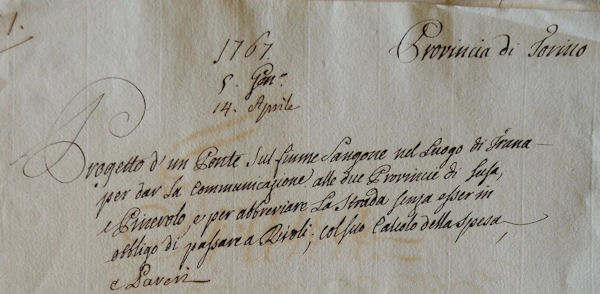 1.
1767
Provincia di Torino
5. Gen.º
14. Aprile
Progetto d'un Ponte sul fiume Sangone nel Luogo di Trana
per dar la Communicazione alle due Provincie di Susa,
e Pinerolo, e per abbreviare La strada senza esser in
obbligo di passare a Rivoli; col suo Calcolo della spesa,
e Pareri